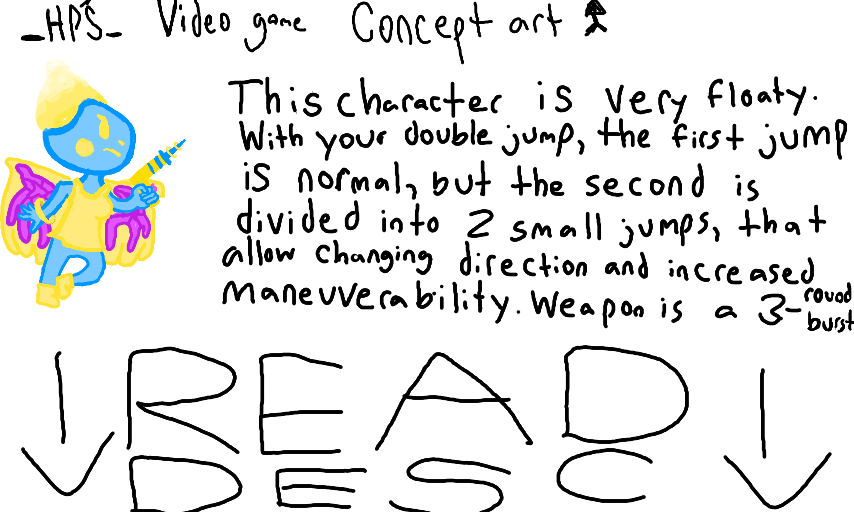 _HPS_ Video game Concept art
This character is very floaty.
With your double jump, the first jump
is normal, but the second is
divided into 2 small jumps, that
allow changing direction and increased
maneuverability. Weapon is a 3-round
burst
READ
DESC